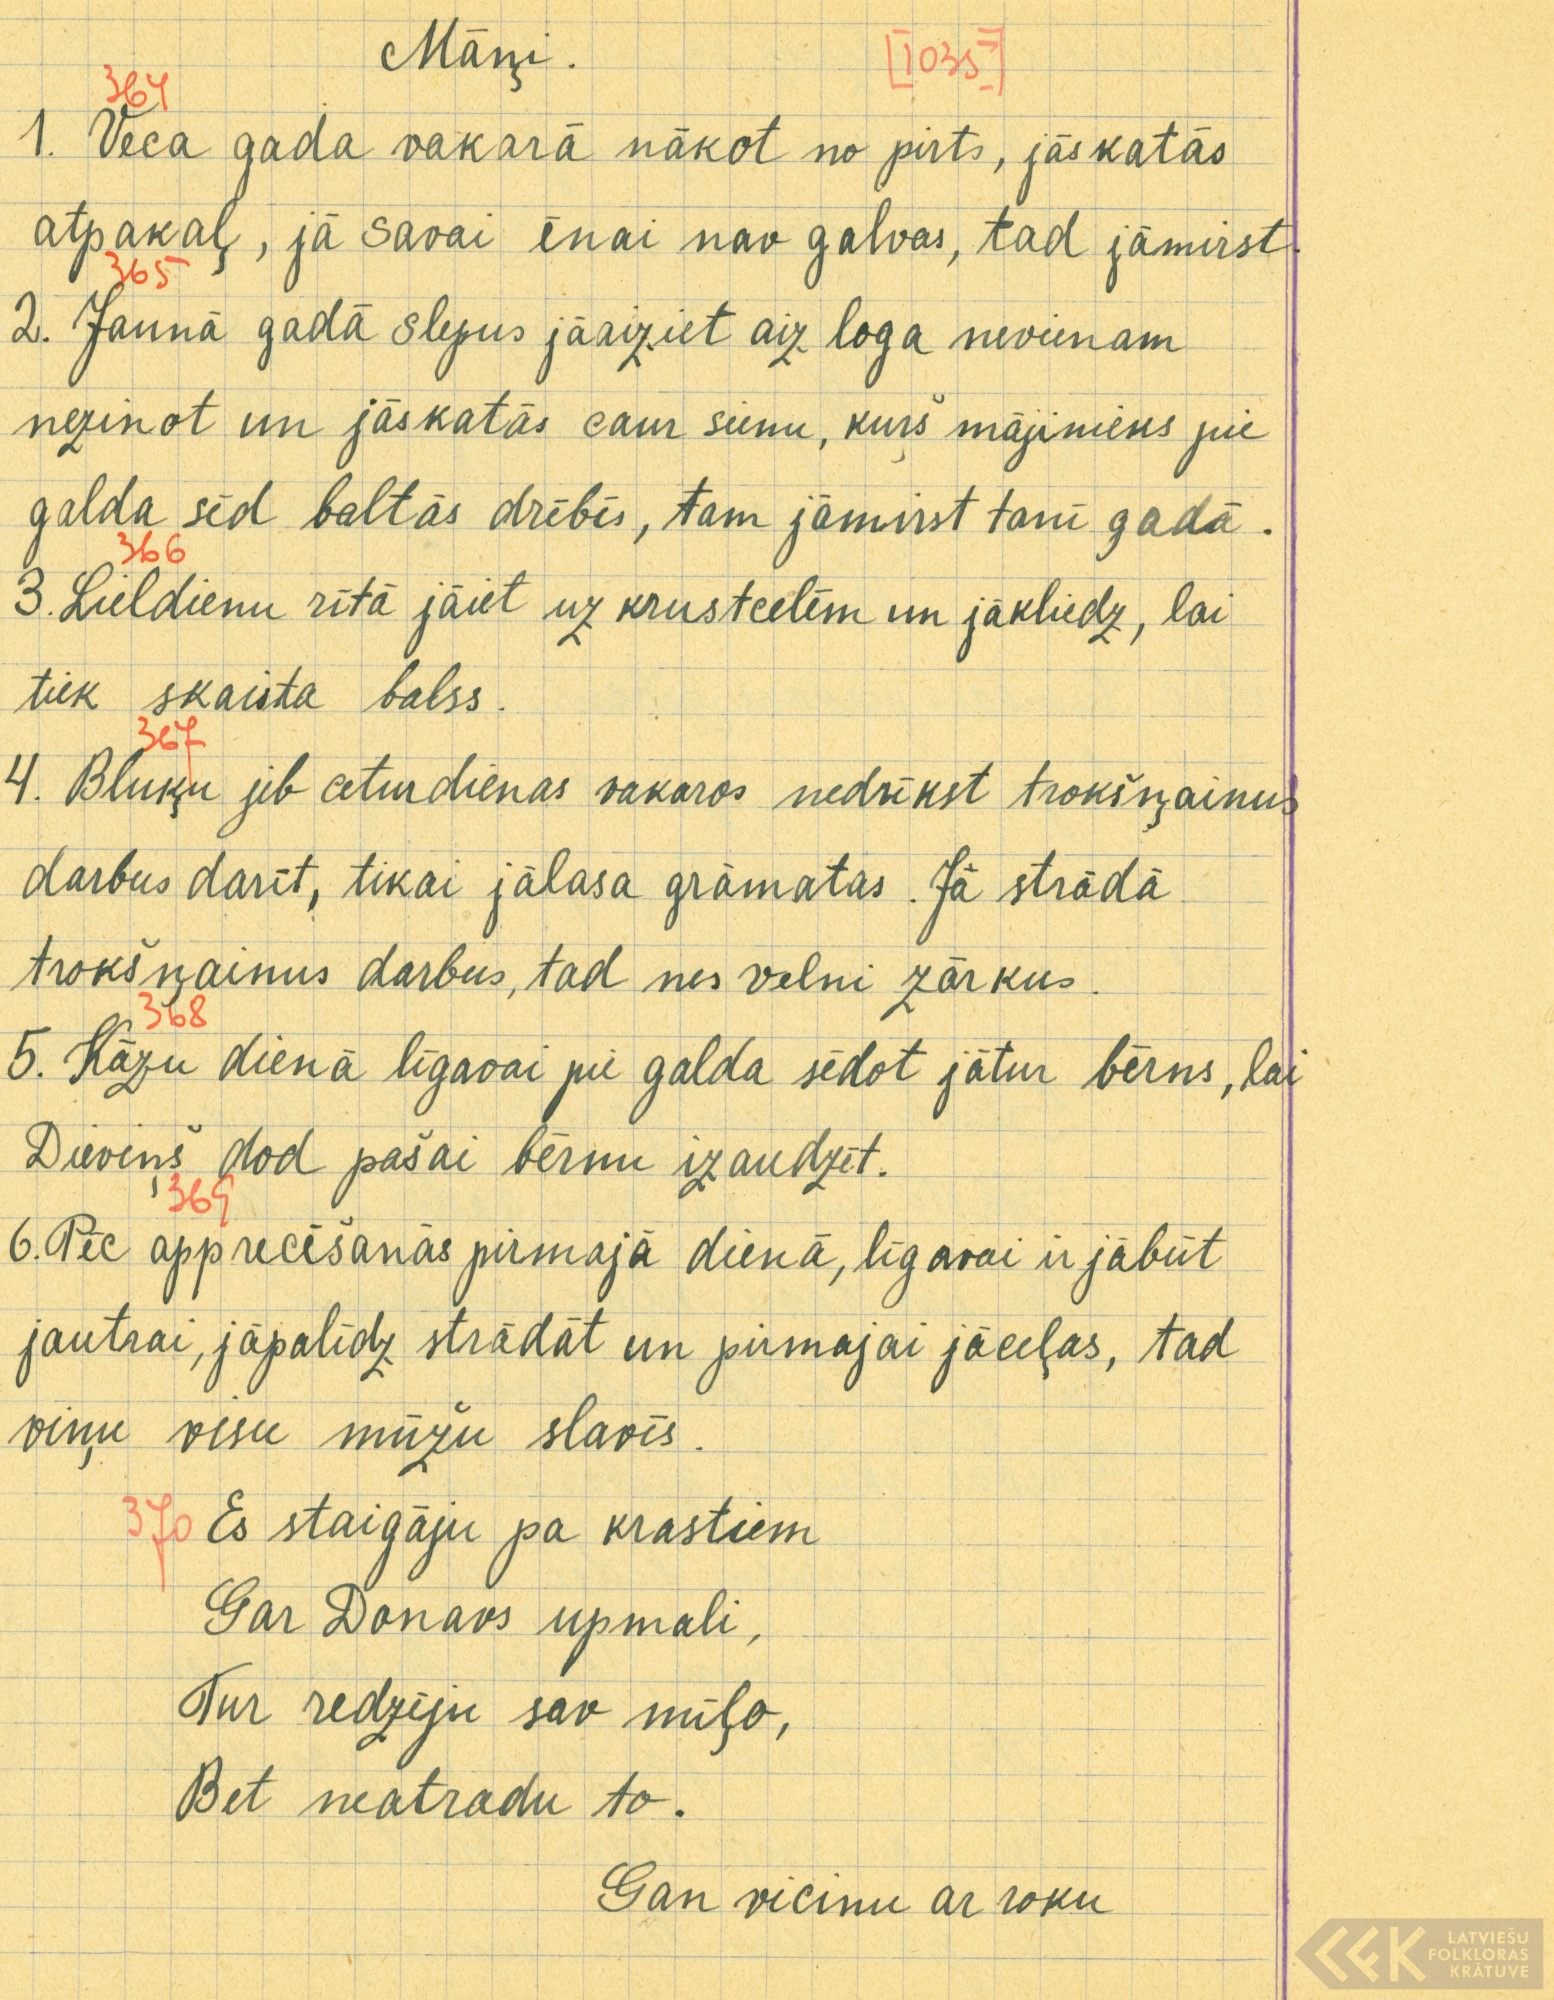 Māņi. [1035]
364
1. Veca gada vakarā nākot no pirts, jāskatās
atpakaļ, jā savai ēnai nav galvas, tad jāmirst.
365
2. Jaunā gadā slepus jāaiziet aiz loga nevienam
nezinot un jāskatās caur sienu, kuŗš mājinieks pie
galda sēd baltās drēbēs, tam jāmirst tanī gadā.
366
3. Lieldienu rītā jāiet uz krustcelēm un jākliedz, lai
tiek skaista balss.
367
4. Bluķu jeb ceturdienas vakaros nedrīkst trokšņainus
darbus darīt, tikai jālasa grāmatas. Jā strādā
trokšņainus darbus, tad nes velni zārkus.
368
5. Kāzu dienā līgavai pie galda sēdot jātur bērns, lai
Dieviņš dod pašai bērnu izaudzēt.
369
6. Pēc apprecēšanās pirmajā dienā, līgavai ir jābūt
jautrai, jāpalīdz strādāt un pirmajai jāceļas, tad
viņu visu mūžu slavēs.
370 Es staigāju pa krastiem
Gar Donavs upmali,
Tur redzēju sav mīļo,
Bet neatradu to.
Gan vicinu ar roku
LATVIEŠU
FOLKLORAS
KRĀTUVE